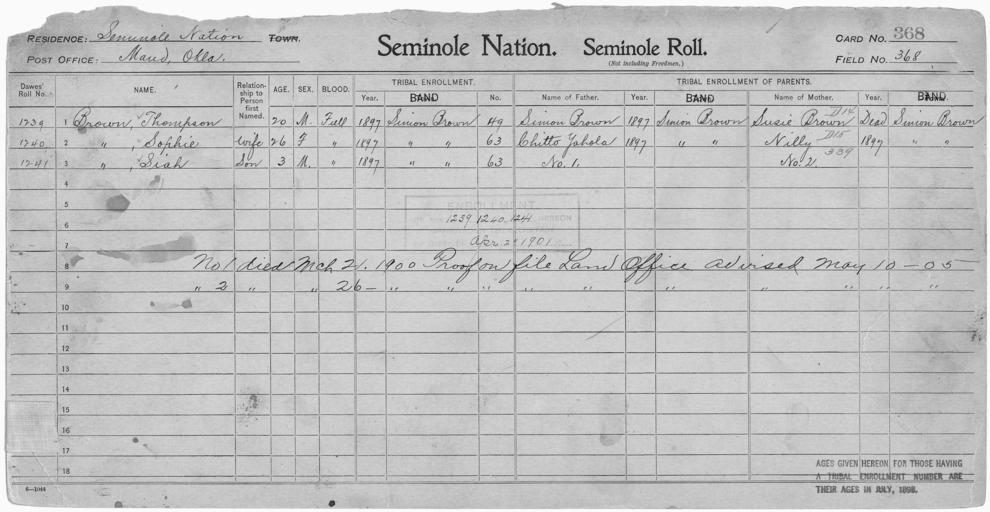 RESIDENCE: Seminole Nation Town. Seminole Nation. Seminole Roll. CARD No. 368
POST OFFICE: Maud, Okla. (Not including Freedmen.) FIELD No. 368
Dawes' Roll No. NAME. Relationship to Person first Named. AGE. SEX. BLOOD. TRIBAL ENROLLMENT. TRIBAL ENROLLMENT OF PARENTS.
Year. BAND No. Name of Father. Year. BAND Name of Mother. Year. BAND
1239 1 Brown, Thompson 20 M. Full 1897 Simion Brown 49 Simion Brown 1897 Simion Brown Susie Brown D14 Dead Simion Brown
1240 2 " , Sophie Wife 26 F " 1897 " " 63 Chitto Yahola 1897 " " Nilly D15 1897 " "
1241 3 " , Siah Son 3 M. " 1897 " " 63 No. 1. No. 2. 339
4
5
ENROLLMENT
6 1239 1240 1241 HEREON
7 Apr. 2 1901
8 No 1 died Mch 21. 1900 Proof on file Land Office advised May 10-05
9 " 2 " " 26 - " " " " " " " " " "
10
11
12
13
14
15
16
17
18
AGES GIVEN HEREON FOR THOSE HAVING
A TRIBAL ENROLLMENT NUMBER ARE
THEIR AGES IN JULY, 1898.
6-1044